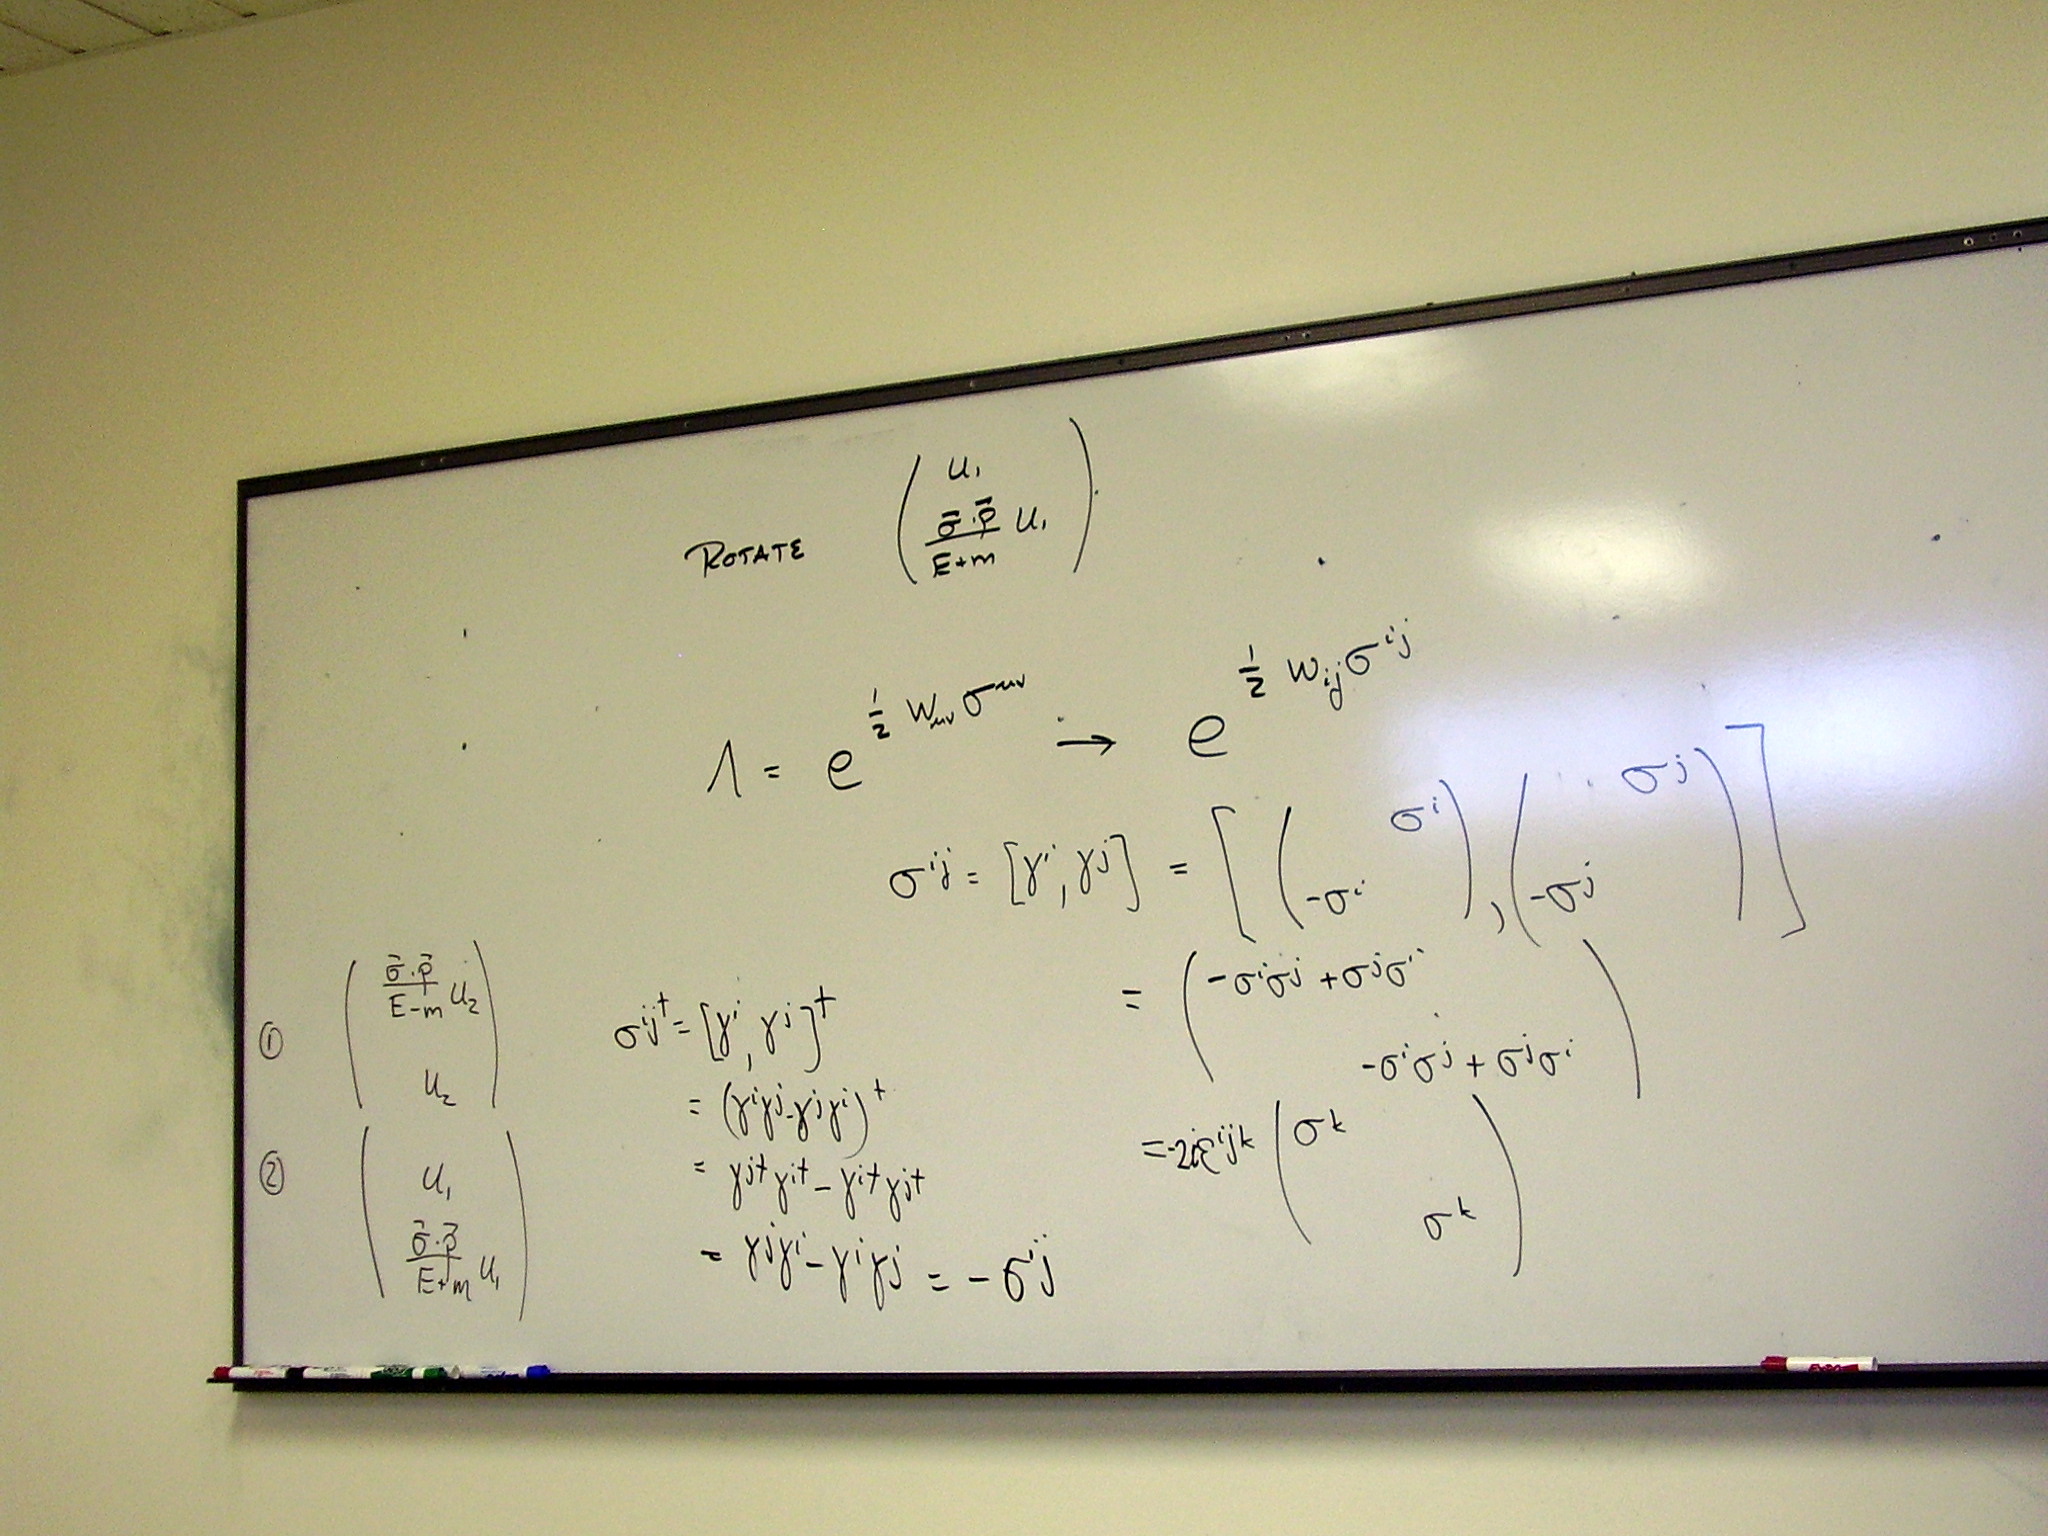 ROTATE ( u₁ ; σ⃗·p⃗/E+m u₁ )
Λ = e^{½ w_{μν} σ^{μν}} → e^{½ w_{ij} σ^{ij}}
σ^{ij} = [γ^i, γ^j] = [ ( σ^i ; -σ^i ), ( σ^j ; -σ^j ) ]
= ( -σ^iσ^j + σ^jσ^i ; -σ^iσ^j + σ^jσ^i )
= -2iε^{ijk} ( σ^k ; σ^k )
① ( σ⃗·p⃗/E-m u₂ ; u₂ )
② ( u₁ ; σ⃗·p⃗/E+m u₁ )
σ^{ij†} = [γ^i, γ^j]^†
= (γ^iγ^j - γ^jγ^i)^†
= γ^{j†}γ^{i†} - γ^{i†}γ^{j†}
= γ^jγ^i - γ^iγ^j = -σ^{ij}